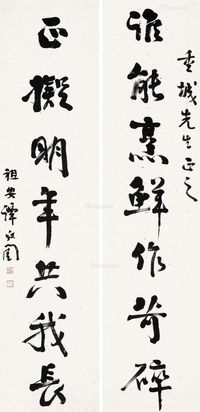 重城先生正之
誰能烹鮮作苛碎
正擬明年共我長
祖安譚延闓